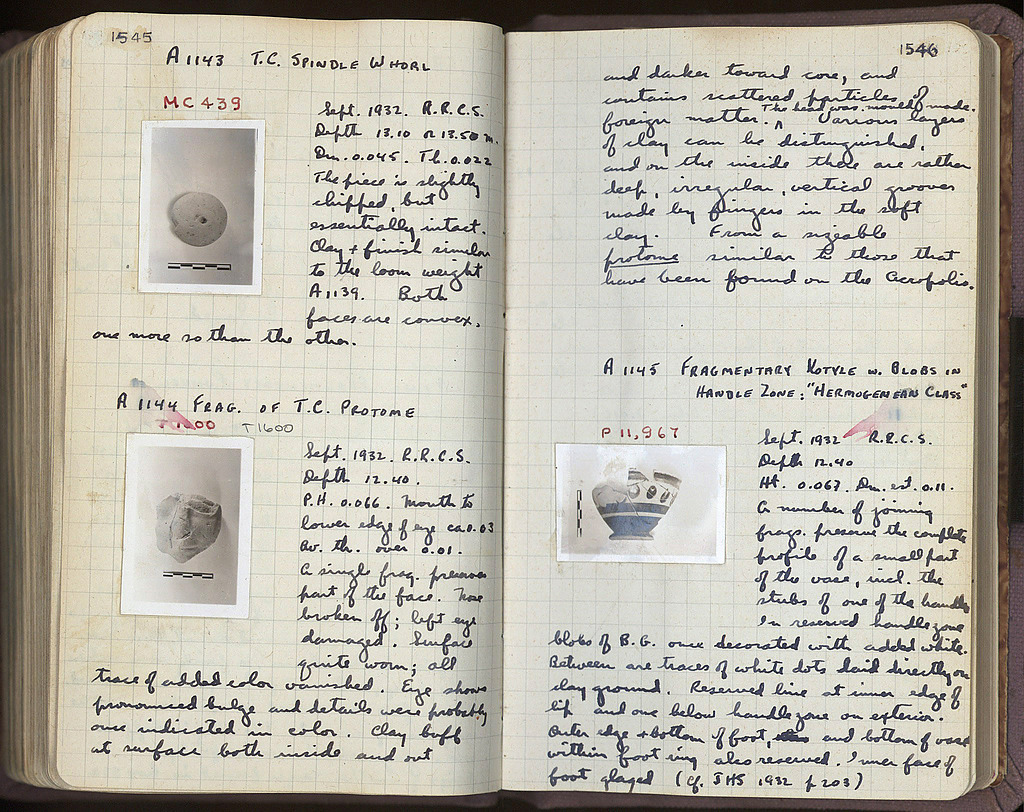 1545
A 1143 T.C. SPINDLE WHORL
MC 439
Sept. 1932. R.R.C.S.
Depth 13.10 or 13.50 m.
Dm. 0.045. Th. 0.022
The piece is slightly
chipped, but
essentially intact.
Clay + finish similar
to the loom weight
A 1139. Both
faces are convex,
one more so than the other.
A 1144 FRAG. OF T.C. PROTOME
T 1600 T 1600
Sept. 1932. R.R.C.S.
Depth 12.40.
P.H. 0.066. Mouth to
lower edge of eye ca. 0.03
Av. th. over 0.01.
A single frag. preserves
part of the face. Nose
broken off; left eye
damaged. Surface
quite worn; all
trace of added color vanished. Eye shows
pronounced bulge and details were probably
once indicated in color. Clay buff
at surface both inside and out
1546
and darker toward core, and
contains scattered particles of
The head was mould made.
foreign matter. ^ Various layers
of clay can be distinguished,
and on the inside there are rather
deep, irregular, vertical grooves
made by fingers in the soft
clay. From a sizeable
protome similar to those that
have been found on the Acropolis.
A 1145 FRAGMENTARY KOTYLE W. BLOBS IN
HANDLE ZONE: "HERMOGENEAN CLASS"
P 11,967
Sept. 1932 R.R.C.S.
Depth 12.40
Ht. 0.067. Dm. est. 0.11.
A number of joining
frags. preserve the complete
profile of a small part
of the vase, incl. the
stubs of one of the handles
In reserved handle zone
blobs of B.G. once decorated with added white.
Between are traces of white dots laid directly on
clay ground. Reserved line at inner edge of
lip and one below handle zone on exterior.
Outer edge + bottom of foot, and bottom of vase
within foot ring also reserved. Inner face of
foot glazed (Cf. JHS 1932 p. 203)